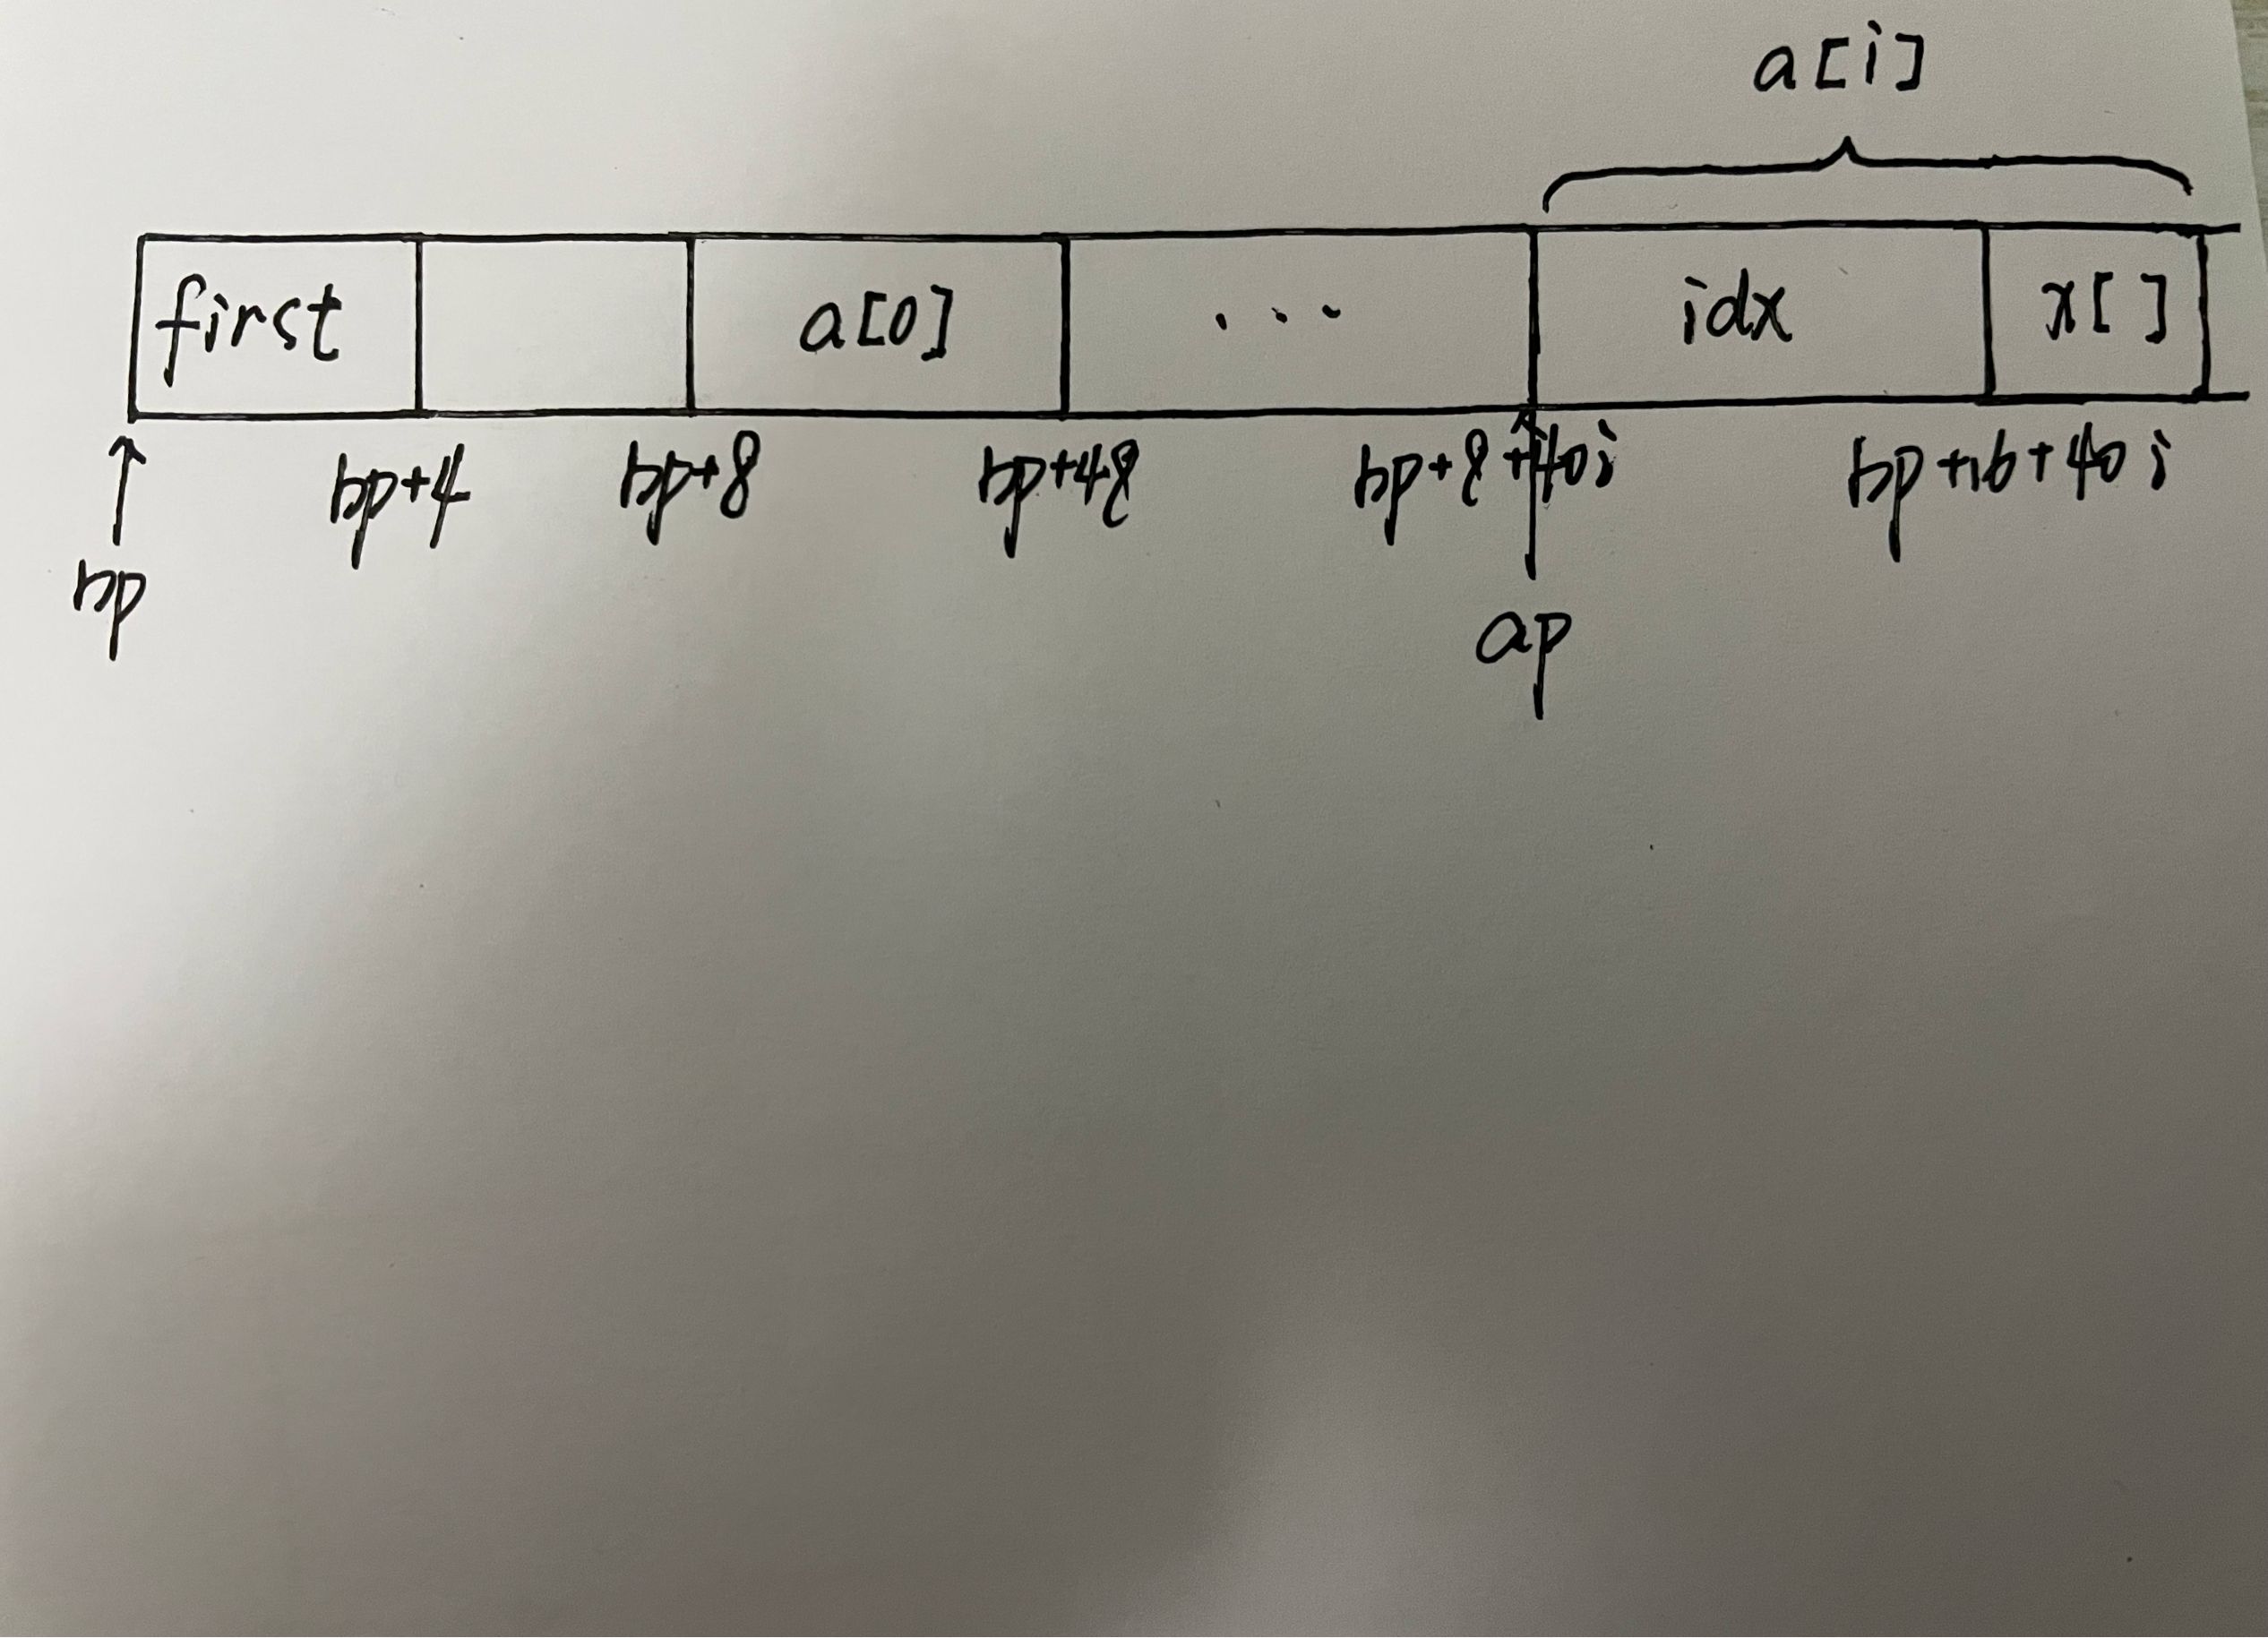 a[i]
first a[0] ... idx x[]
bp+4 bp+8 bp+48 bp+8+40i bp+16+40i
bp ap